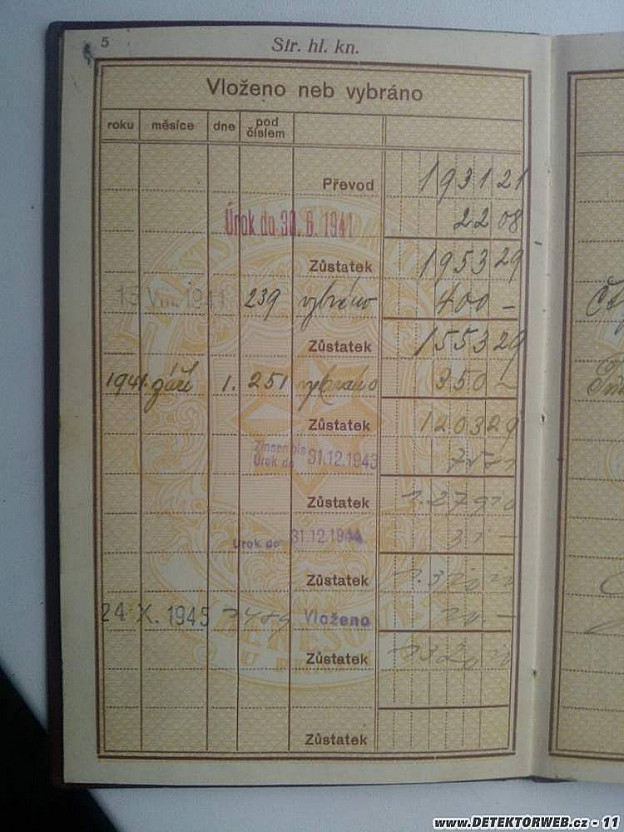 5
Str. hl. kn.
Vloženo neb vybráno
roku měsíce dne pod číslem
Převod 1931 21
Úrok do 30. 6. 1941 22 08
Zůstatek 1953 29
15 VIII. 1941 239 vybráno 400 -
Zůstatek 1553 29
1941 září 1. 251 vybráno 350 -
Zůstatek 1203 29
Zinsen bis
Úrok do 31.12.1943
Zůstatek
Úrok do 31.12.1944
Zůstatek
24 X. 1945 Vloženo
Zůstatek
Zůstatek
www.DETEKTORWEB.cz - 11